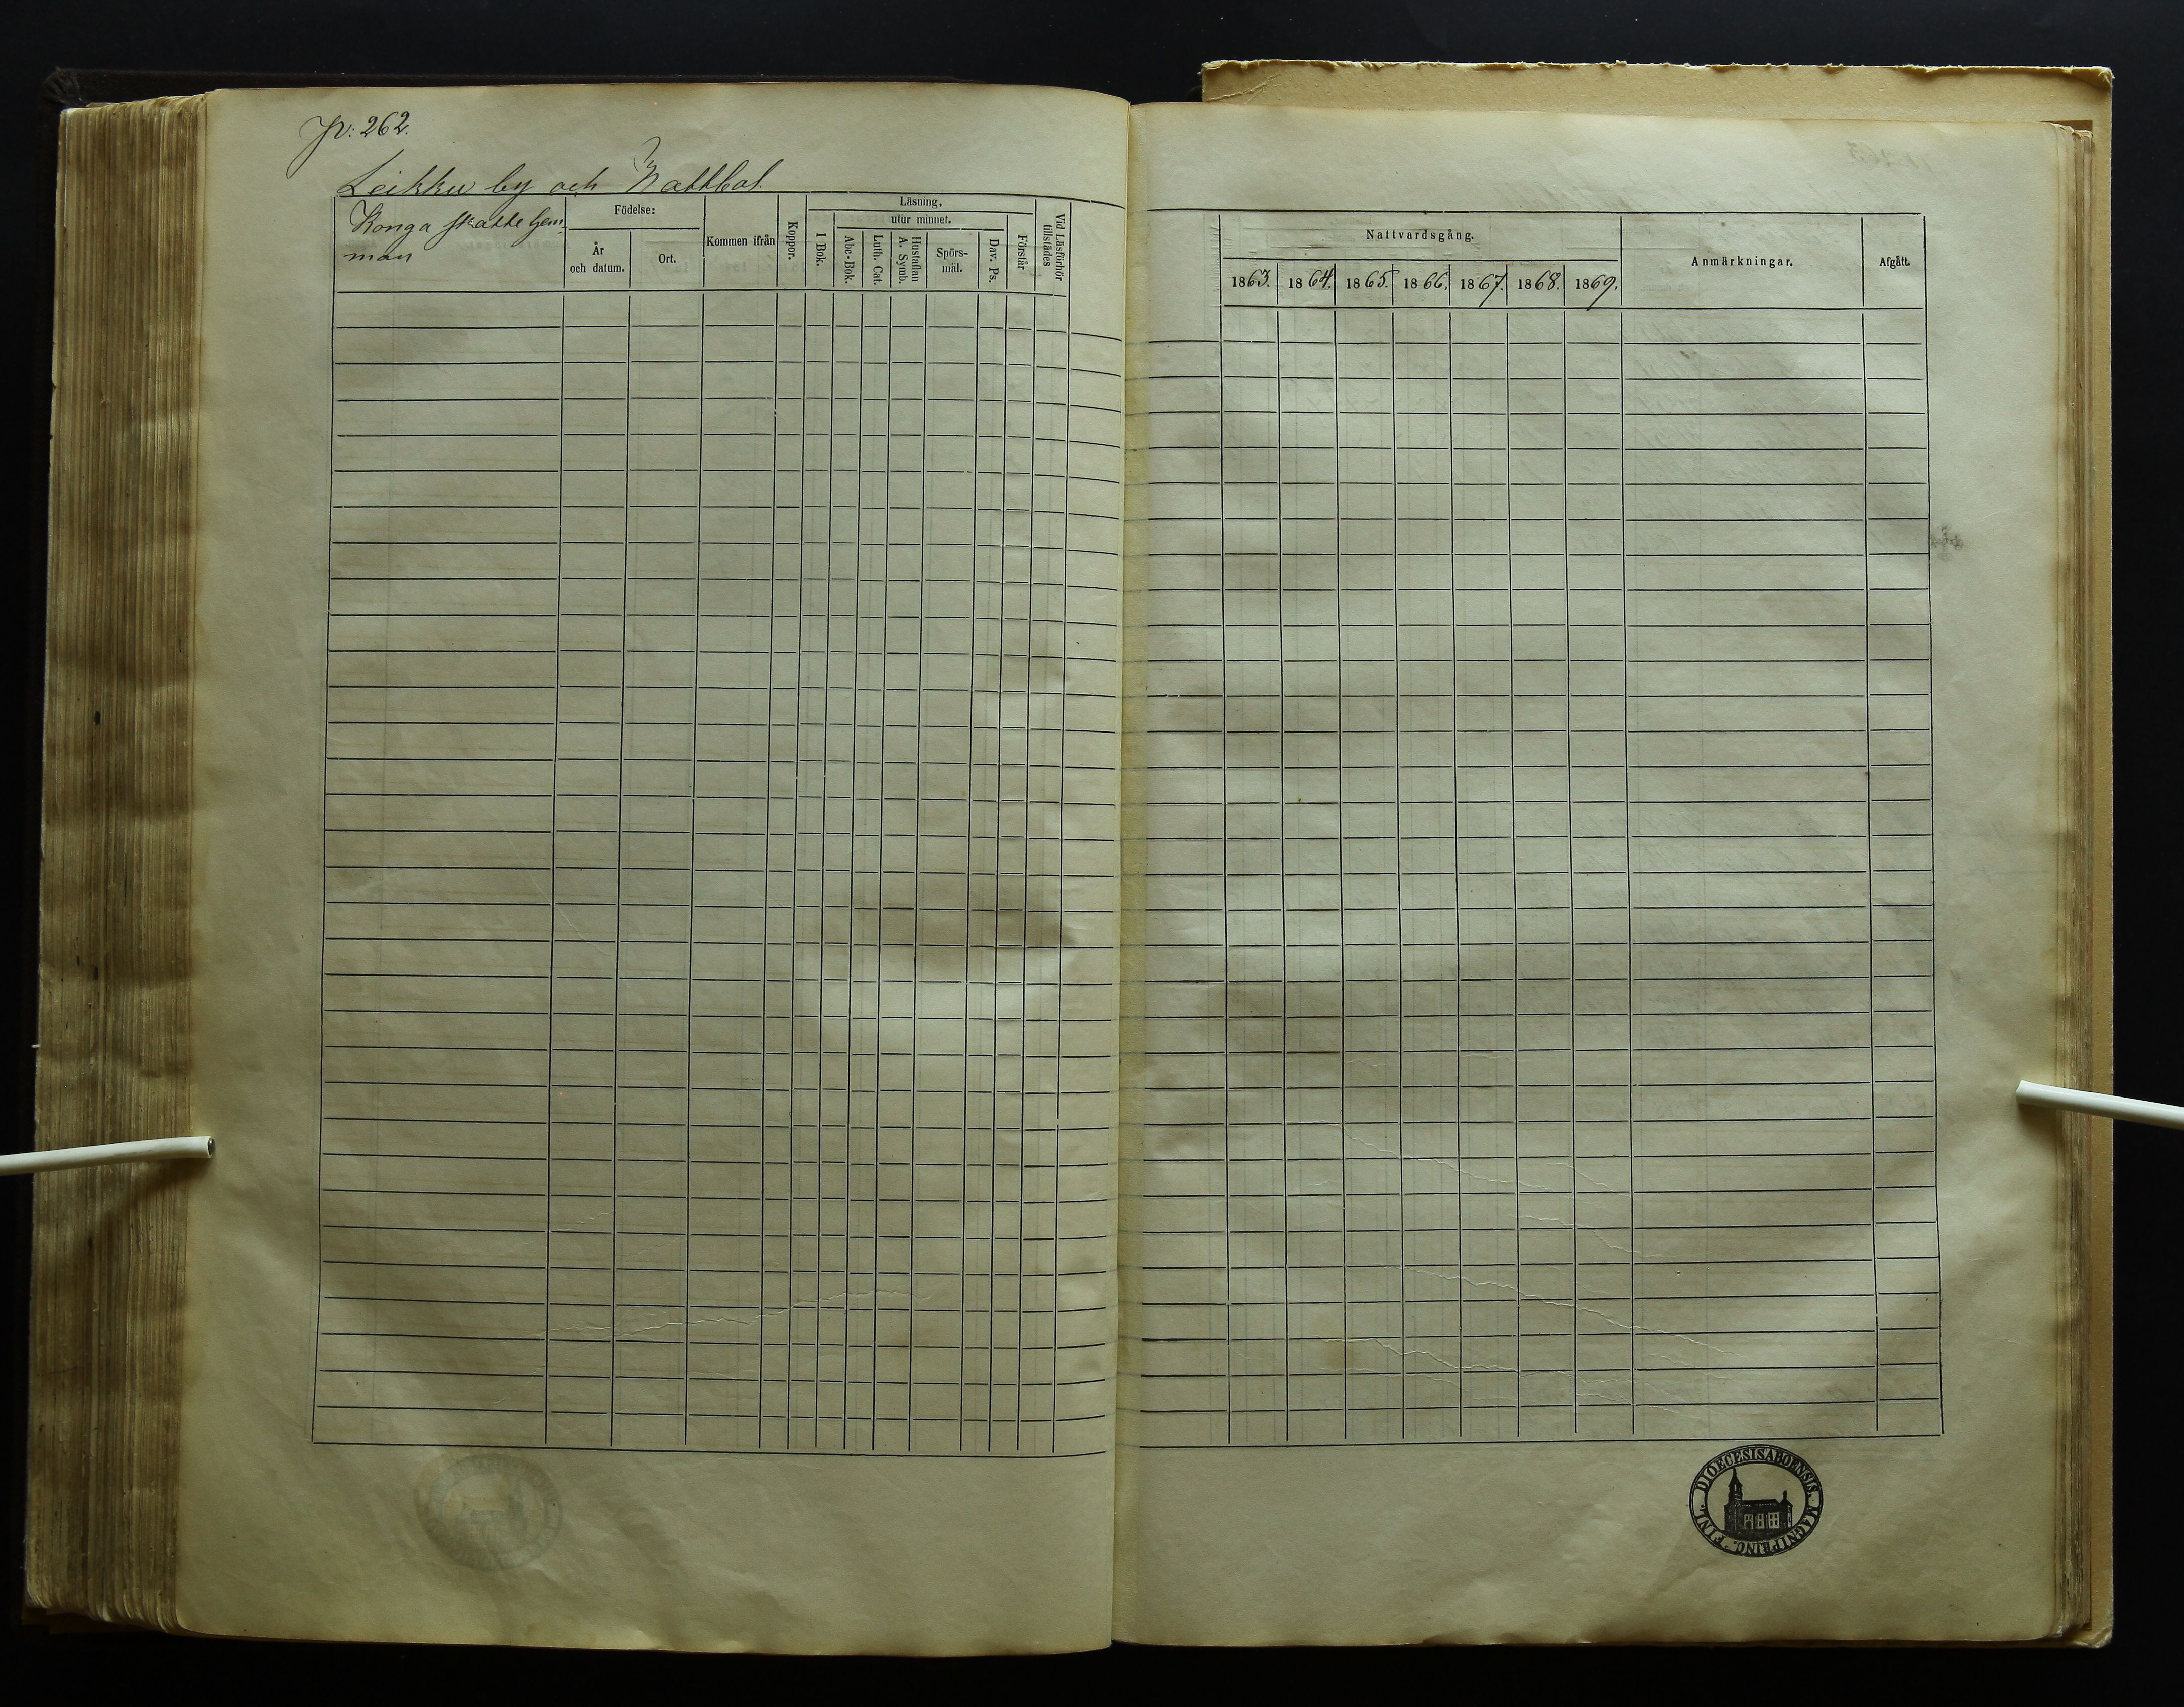 262.
Leikku by och
Konga skatte hem-
man
Födelse:
År
och datum.
Ort.
Kommen ifrån
Koppor.
Läsning.
I Bok.
utur minnet.
Abc-Bok.
Luth. Cat.
Hustaflan
A. Symb.
Spörs-
mål.
Dav. Ps.
Förstår
Vid Läsförhör
tillstädes
Nattvardsgång.
1863. 1864. 1865. 1866. 1867. 1868. 1869.
Anmärkningar.
Afgått.
DIOECESIS ABOENSIS. MAGNI PRINC. FINL.